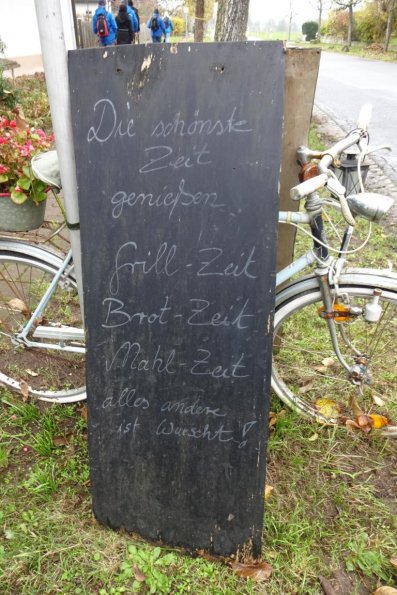 Die schönste
Zeit
genießen
Grill-Zeit
Brot-Zeit
Mahl-Zeit
alles andere
ist Wurscht!